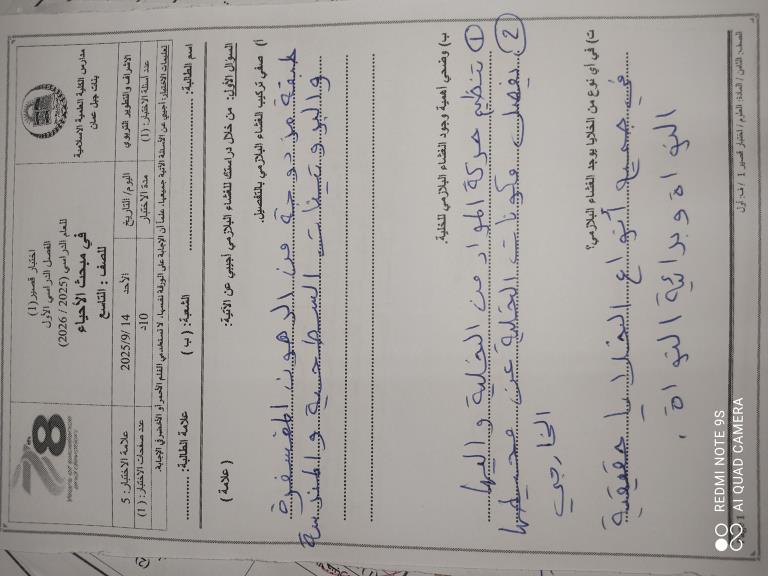 مدارس الكلية العلمية الاسلامية
بنات جبل عمان
اختبار قصير (1)
الفصل الدراسي الأول
للعام الدراسي (2025 / 2026)
في مبحث الأحياء
للصف : التاسع
78
الاشراف والتطوير التربوي
اليوم/ التاريخ
الأحد 2025/9/ 14
علامة الاختبار: 5
عدد أسئلة الاختبار: (1)
مدة الاختبار
10د
عدد صفحات الاختبار: (1)
تعليمات الاختبار: أجيبي عن الأسئلة الآتية جميعها، علما أن الإجابة على الورقة نفسها، لا تستخدمي القلم الأحمر أو الأخضر في الإجابة.
اسم الطالبة: الشعبة: ( ب ) علامة الطالبة:
السؤال الأول: من خلال دراستك للغشاء البلازمي أجيبي عن الآتية: ( علامة )
أ) صفي تركيب الغشاء البلازمي بالتفصيل.
طبقة مزدوجة من الدهون المفسفرة
والبروتينات السطحية والمنغرسة
ب) وضحي أهمية وجود الغشاء البلازمي للخلية.
① تنظيم حركة المواد من الخلية واليها
② يفصل مكونات الخلية عن محيطها
الخارجي
ت) في أي نوع من الخلايا يوجد الغشاء البلازمي؟
في جميع أنواع الخلايا حقيقية
النواة وبدائية النواة .
REDMI NOTE 9S
AI QUAD CAMERA